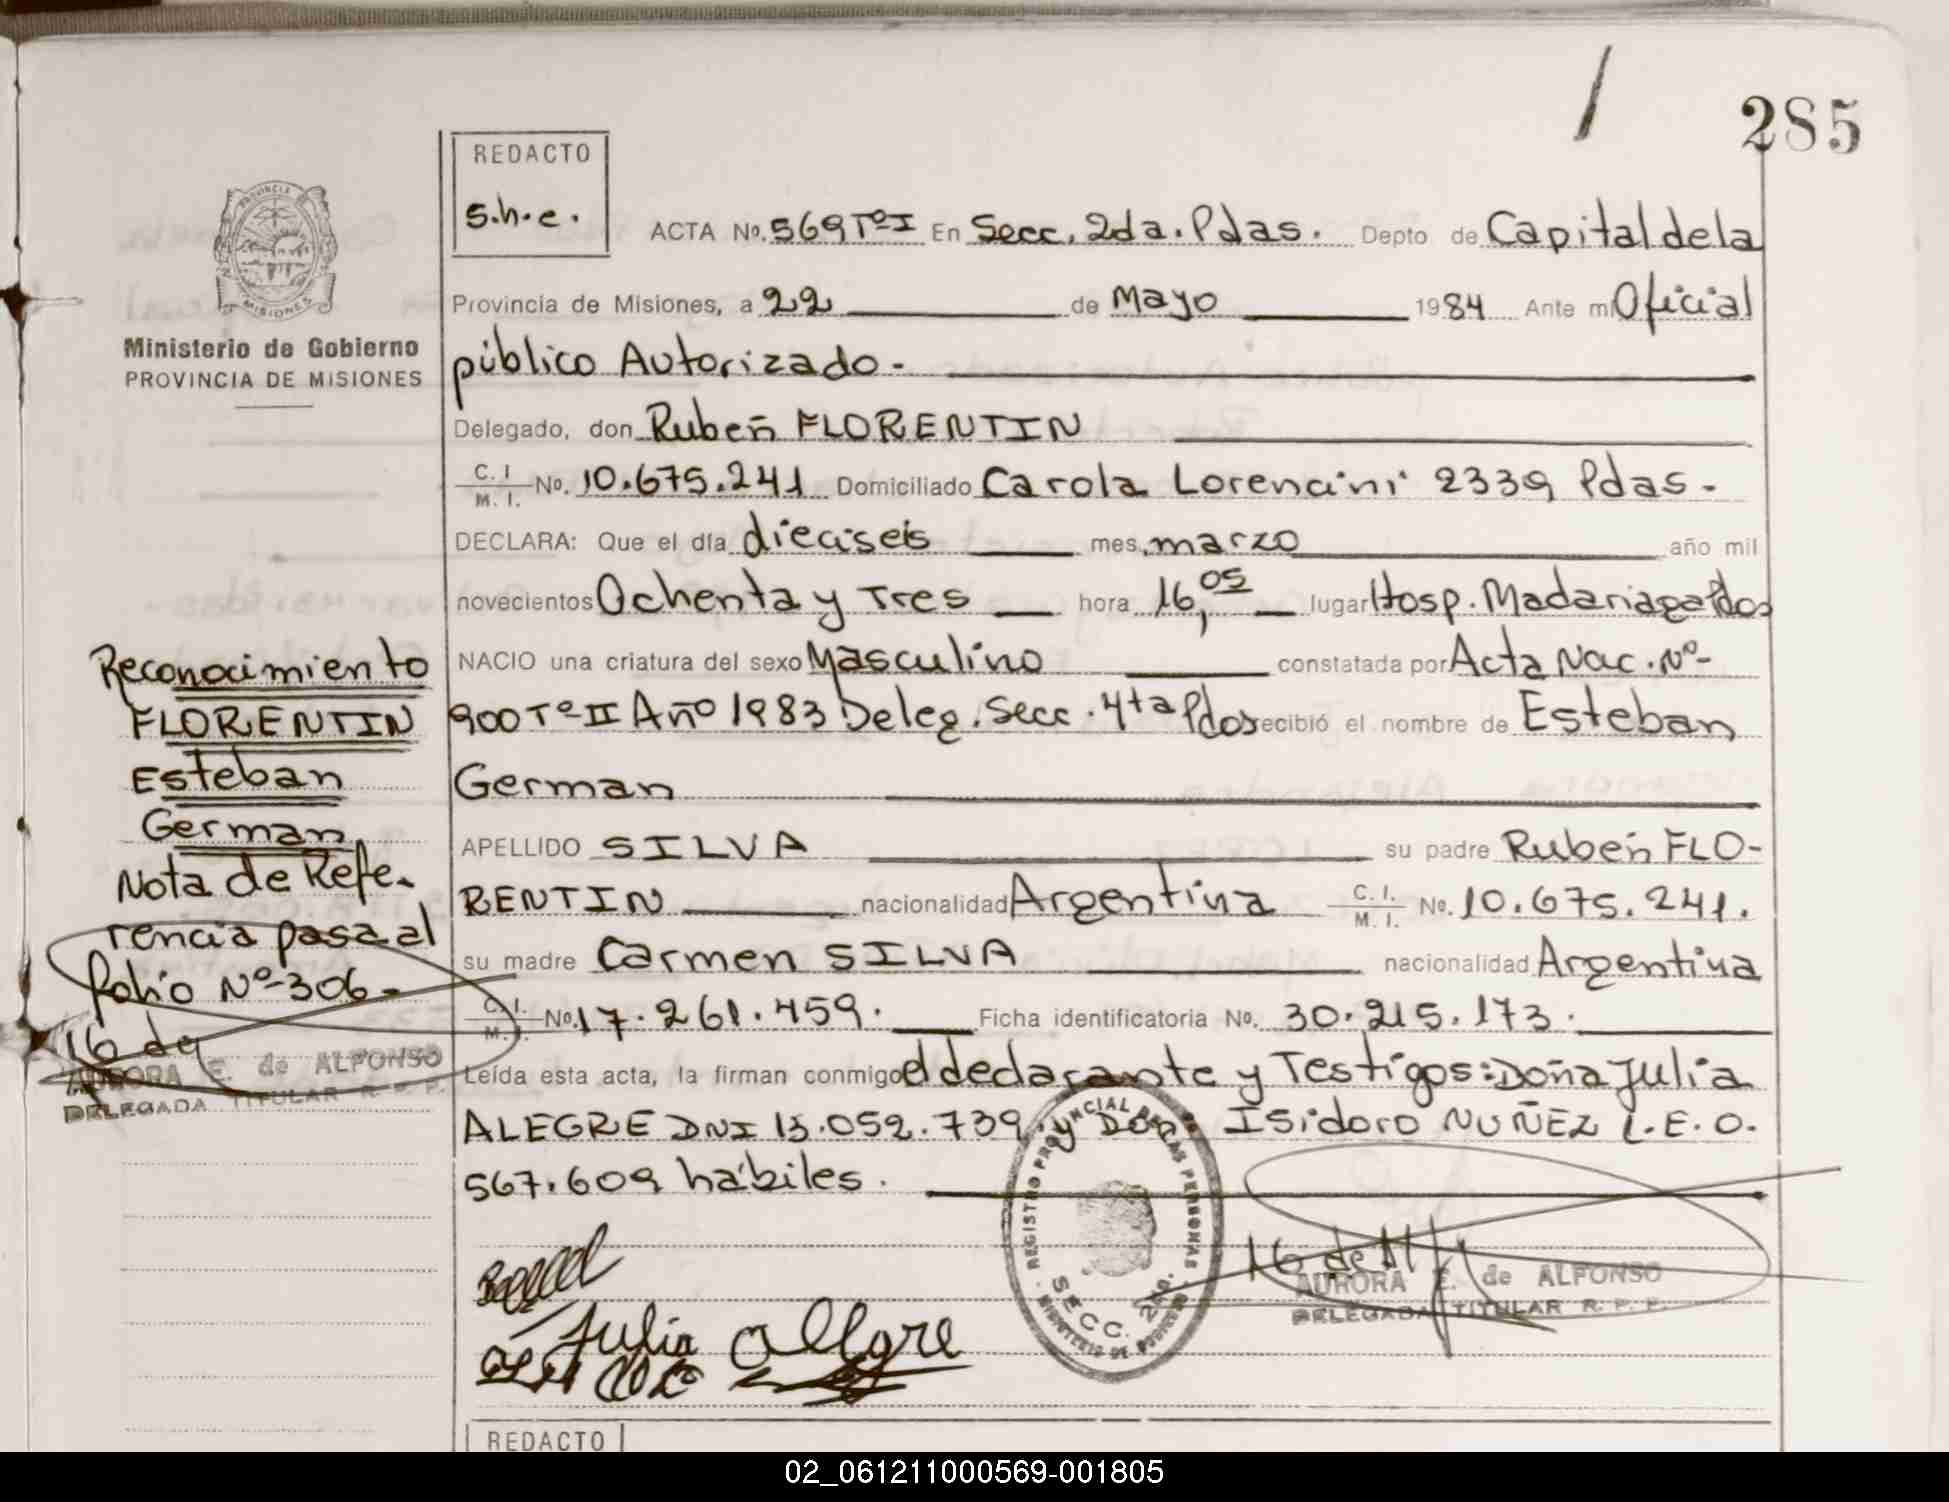 285
REDACTO
s.h.e.
ACTA No. 569 TºI En Secc. 2da. Pdas. Depto de Capital de la
Provincia de Misiones, a 22 de Mayo 1984 Ante mi Oficial
público Autorizado.-
Delegado, don Rubén FLORENTIN
C. I. / M. I. No. 10.675.241 Domiciliado Carola Lorencini 2339 Pdas.-
DECLARA: Que el día dieciseis mes marzo año mil
novecientos Ochenta y Tres hora 16,05 lugar Hosp. Madariaga Pdas
NACIO una criatura del sexo Masculino constatada por Acta Nac. Nº-
900 Tº II Año 1983 Deleg. Secc. 4ta Pdas recibió el nombre de Esteban
German
APELLIDO SILVA su padre Rubén FLO-
RENTIN nacionalidad Argentina C. I. / M. I. No. 10.675.241.
su madre Carmen SILVA nacionalidad Argentina
C. I. / M. I. No. 17.261.459. Ficha identificatoria No. 30.215.173.
Leída esta acta, la firman conmigo el declarante y Testigos: Doña Julia
ALEGRE DNI 13.052.739 y Don Isidoro NUÑEZ L.E.O.
567.609 hábiles.
Ministerio de Gobierno
PROVINCIA DE MISIONES
Reconocimiento
FLORENTIN
Esteban
German
Nota de Refe-
rencia pasa al
folio Nº-306-
AURORA E. de ALFONSO
DELEGADA TITULAR R. P. P.
REGISTRO PROVINCIAL DE LAS PERSONAS
SECC. 2da.
MINISTERIO DE GOBIERNO
AURORA E. de ALFONSO
DELEGADA TITULAR R. P. P.
Julia Allgre
REDACTO
02_061211000569-001805